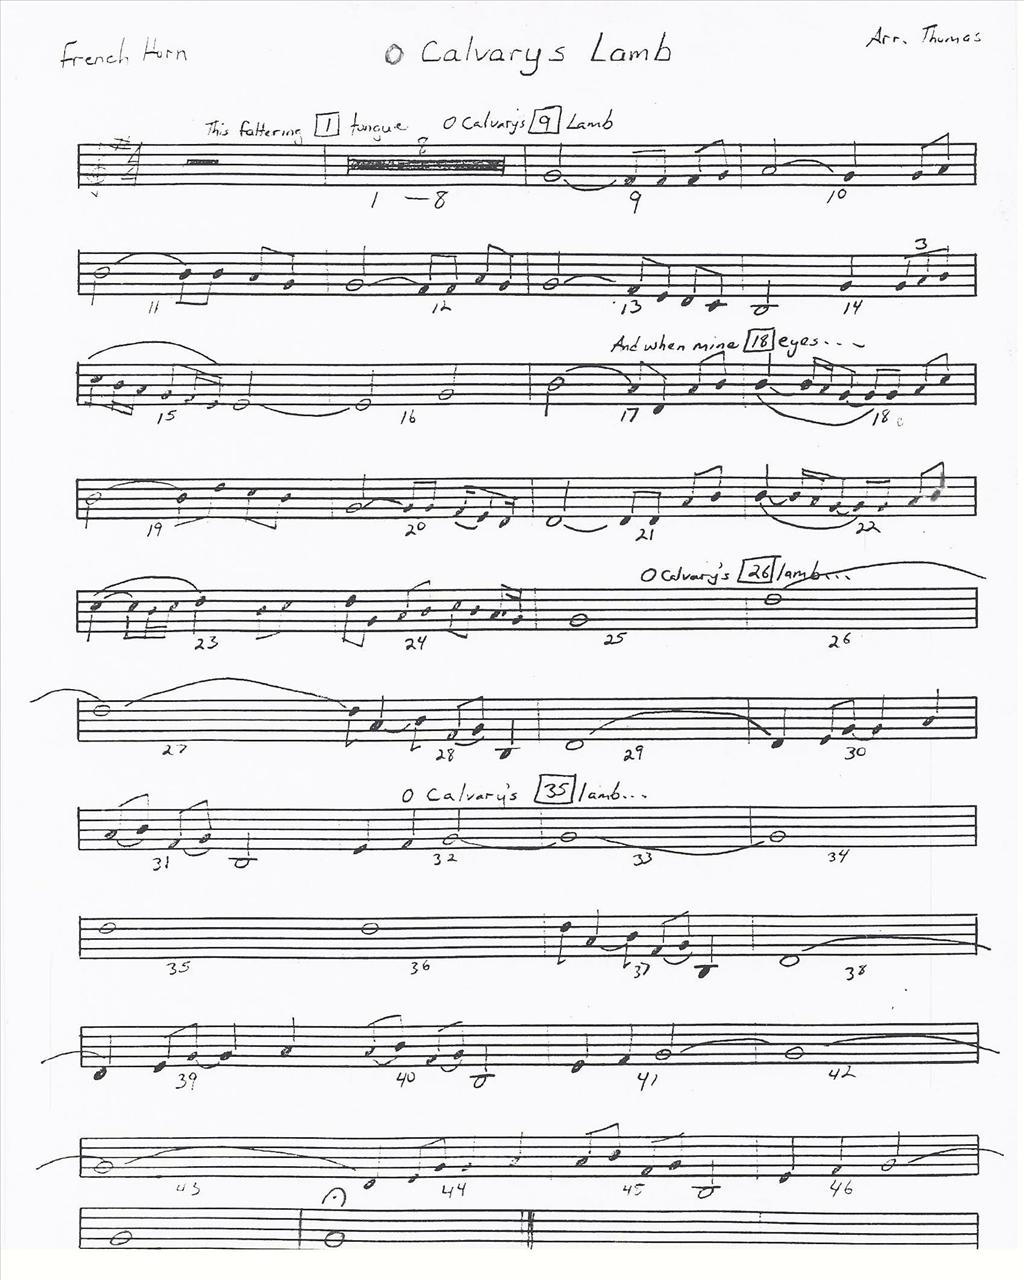 French Horn O Calvarys Lamb Arr. Thomas
This faltering 1 tongue O Calvary's 9 Lamb
8
1 - 8 9 10
3
11 12 13 14
And when mine 18 eyes...
15 16 17 18
19 20 21 22
O Calvary's 26 lamb...
23 24 25 26
27 28 29 30
O Calvary's 35 lamb...
31 32 33 34
35 36 37 38
39 40 41 42
43 44 45 46